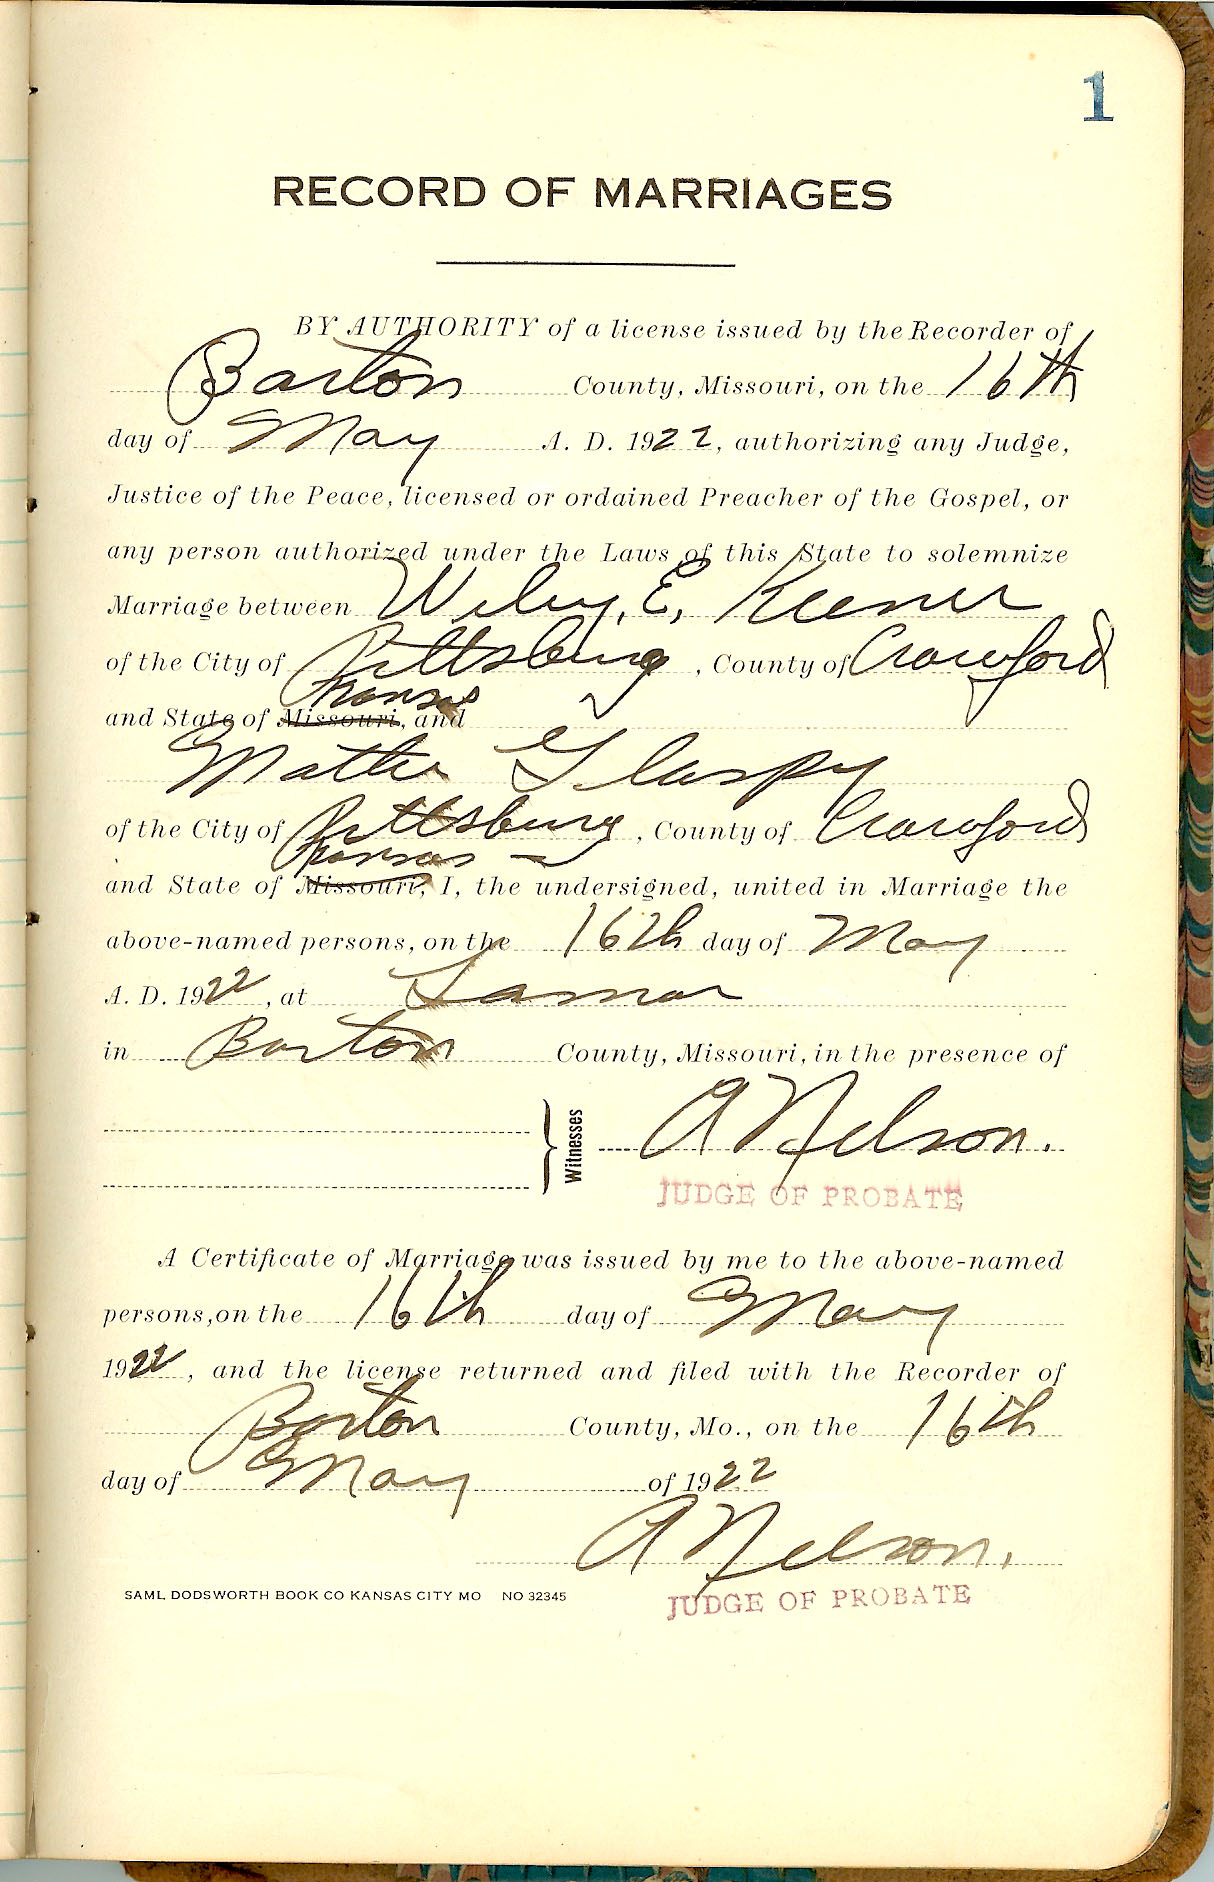 1
RECORD OF MARRIAGES
BY AUTHORITY of a license issued by the Recorder of
Barton County, Missouri, on the 16th
day of May A. D. 1922, authorizing any Judge,
Justice of the Peace, licensed or ordained Preacher of the Gospel, or
any person authorized under the Laws of this State to solemnize
Marriage between Wiley, E, Keener
of the City of Pittsburg, County of Crawford
Kansas
and State of Missouri, and
Mattie Glaspy
of the City of Pittsburg, County of Crawford
Kansas
and State of Missouri, I, the undersigned, united in Marriage the
above-named persons, on the 16th day of May
A. D. 1922, at Lamar
in Barton County, Missouri, in the presence of
Witnesses
A Nelson.
JUDGE OF PROBATE
A Certificate of Marriage was issued by me to the above-named
persons, on the 16th day of May
1922, and the license returned and filed with the Recorder of
Barton County, Mo., on the 16th
day of May of 1922
A Nelson.
JUDGE OF PROBATE
SAML DODSWORTH BOOK CO KANSAS CITY MO NO 32345